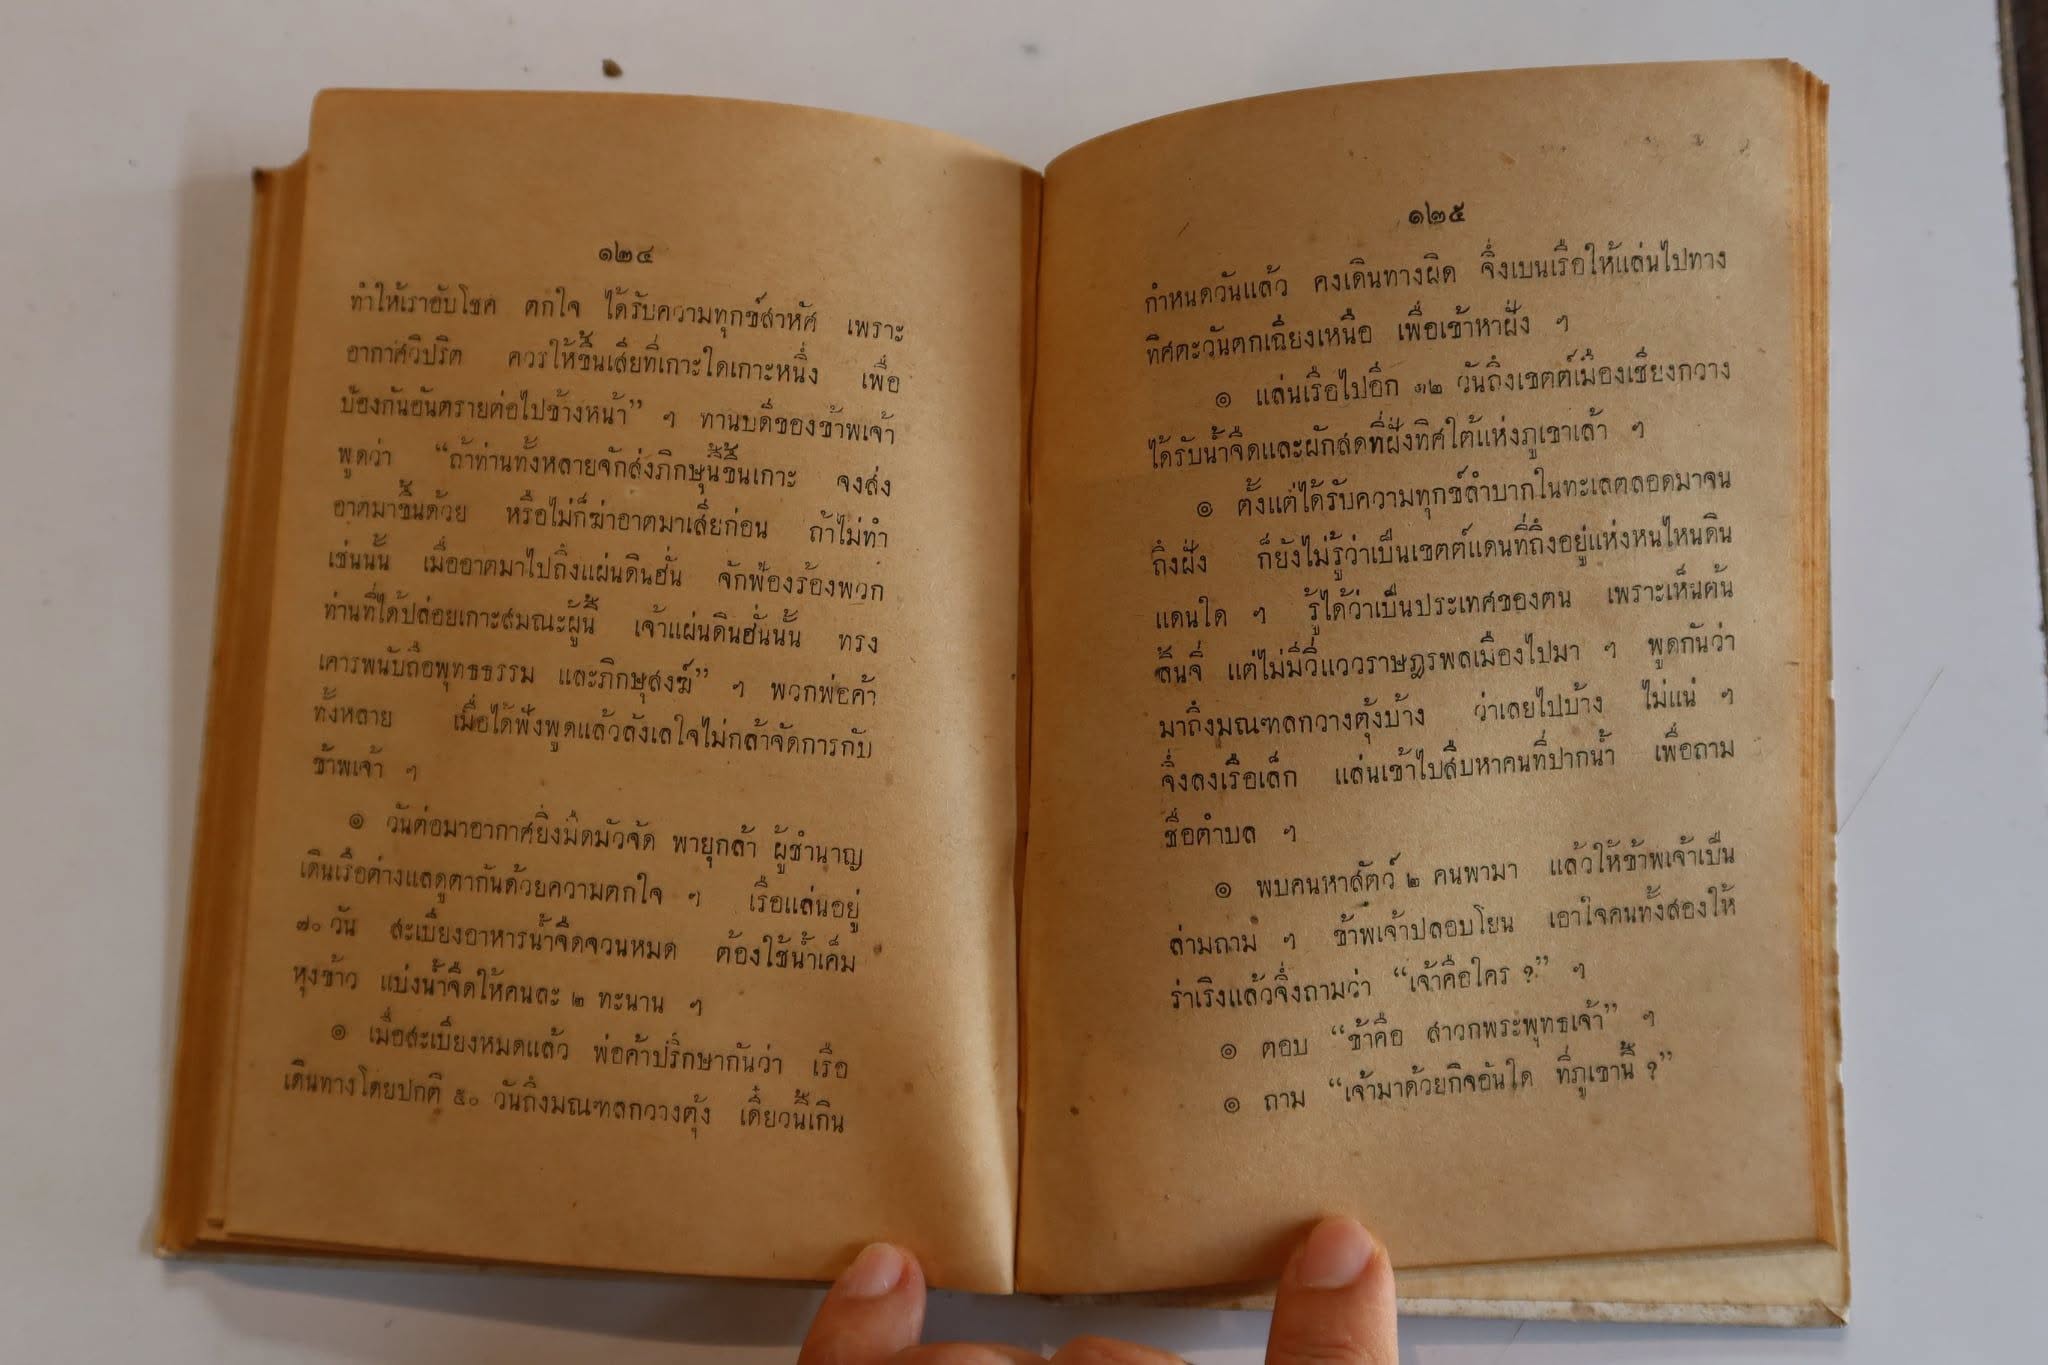 ๑๒๔
ทำให้เราอับโชค ตกใจ ได้รับความทุกข์สาหัส เพราะ
อากาศวิปริต ควรให้ขึ้นเสียที่เกาะใดเกาะหนึ่ง เพื่อ
ป้องกันอันตรายต่อไปข้างหน้า” ฯ ทานบดีของข้าพเจ้า
พูดว่า “ถ้าท่านทั้งหลายจักส่งภิกษุนี้ขึ้นเกาะ จงส่ง
อาตมาขึ้นด้วย หรือไม่ก็ฆ่าอาตมาเสียก่อน ถ้าไม่ทำ
เช่นนั้น เมื่ออาตมาไปถึงแผ่นดินฮั่น จักฟ้องร้องพวก
ท่านที่ได้ปล่อยเกาะสมณะผู้นี้ เจ้าแผ่นดินฮั่นนั้น ทรง
เคารพนับถือพุทธธรรม และภิกษุสงฆ์” ฯ พวกพ่อค้า
ทั้งหลาย เมื่อได้ฟังพูดแล้วลังเลใจไม่กล้าจัดการกับ
ข้าพเจ้า ฯ
๏ วันต่อมาอากาศยิ่งมืดมัวจัด พายุกล้า ผู้ชำนาญ
เดินเรือต่างแลดูตากันด้วยความตกใจ ฯ เรือแล่นอยู่
๗๐ วัน สะเบียงอาหารน้ำจืดจวนหมด ต้องใช้น้ำเค็ม
หุงข้าว แบ่งน้ำจืดให้คนละ ๒ ทะนาน ฯ
๏ เมื่อสะเบียงหมดแล้ว พ่อค้าปรึกษากันว่า เรือ
เดินทางโดยปกติ ๕๐ วันถึงมณฑลกวางตุ้ง เดี๋ยวนี้เกิน
๑๒๕
กำหนดวันแล้ว คงเดินทางผิด จึ่งเบนเรือให้แล่นไปทาง
ทิศตะวันตกเฉียงเหนือ เพื่อเข้าหาฝั่ง ฯ
๏ แล่นเรือไปอีก ๑๒ วันถึงเขตต์เมืองเชียงกวาง
ได้รับน้ำจืดและผักสดที่ฝั่งทิศใต้แห่งภูเขาเล้า ฯ
๏ ตั้งแต่ได้รับความทุกข์ลำบากในทะเลตลอดมาจน
ถึงฝั่ง ก็ยังไม่รู้ว่าเป็นเขตต์แดนที่ถึงอยู่แห่งหนไหนดิน
แดนใด ฯ รู้ได้ว่าเป็นประเทศของตน เพราะเห็นต้น
ลิ้นจี่ แต่ไม่มีวี่แววราษฎรพลเมืองไปมา ฯ พูดกันว่า
มาถึงมณฑลกวางตุ้งบ้าง ว่าเลยไปบ้าง ไม่แน่ ฯ
จึ่งลงเรือเล็ก แล่นเข้าไปสืบหาคนที่ปากน้ำ เพื่อถาม
ชื่อตำบล ฯ
๏ พบคนหาสัตว์ ๒ คนพามา แล้วให้ข้าพเจ้าเป็น
ล่ามถาม ฯ ข้าพเจ้าปลอบโยน เอาใจคนทั้งสองให้
ร่าเริงแล้วจึ่งถามว่า “เจ้าคือใคร ?” ฯ
๏ ตอบ “ข้าคือ สาวกพระพุทธเจ้า” ฯ
๏ ถาม “เจ้ามาด้วยกิจอันใด ที่ภูเขานี้ ?”